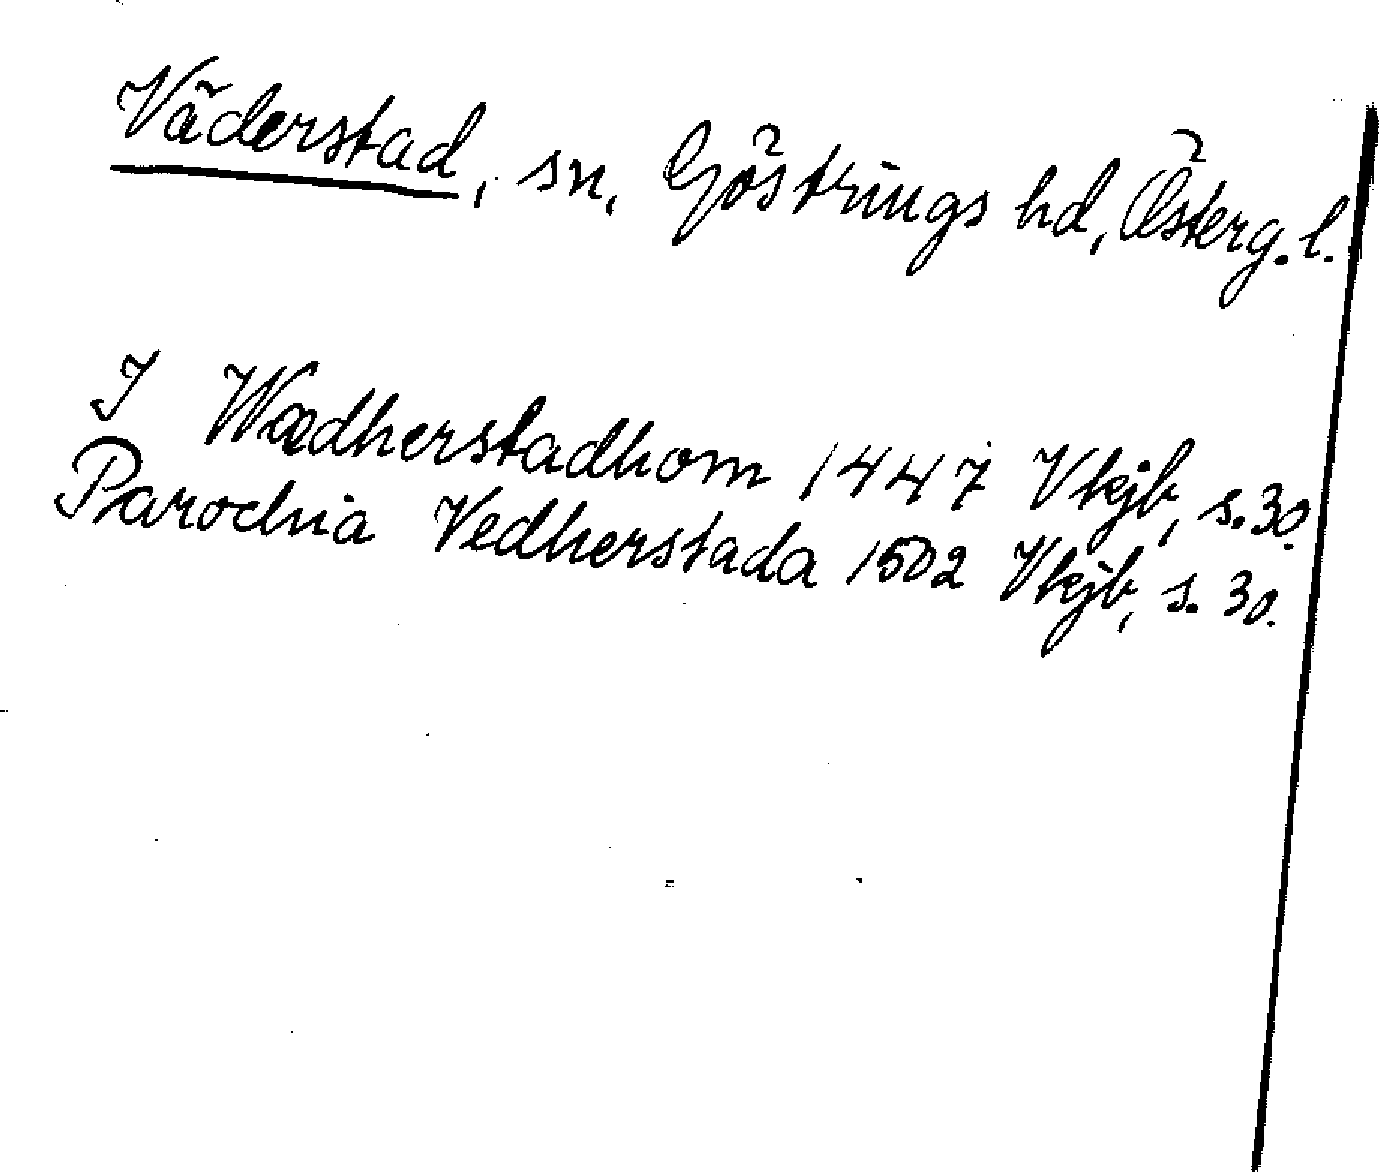 Väderstad, sn, Göstrings hd, Österg. l.
I Wædherstadhom 1447 Vkjb, s. 30.
Parochia Vedherstada 1502 Vkjb, s. 30.